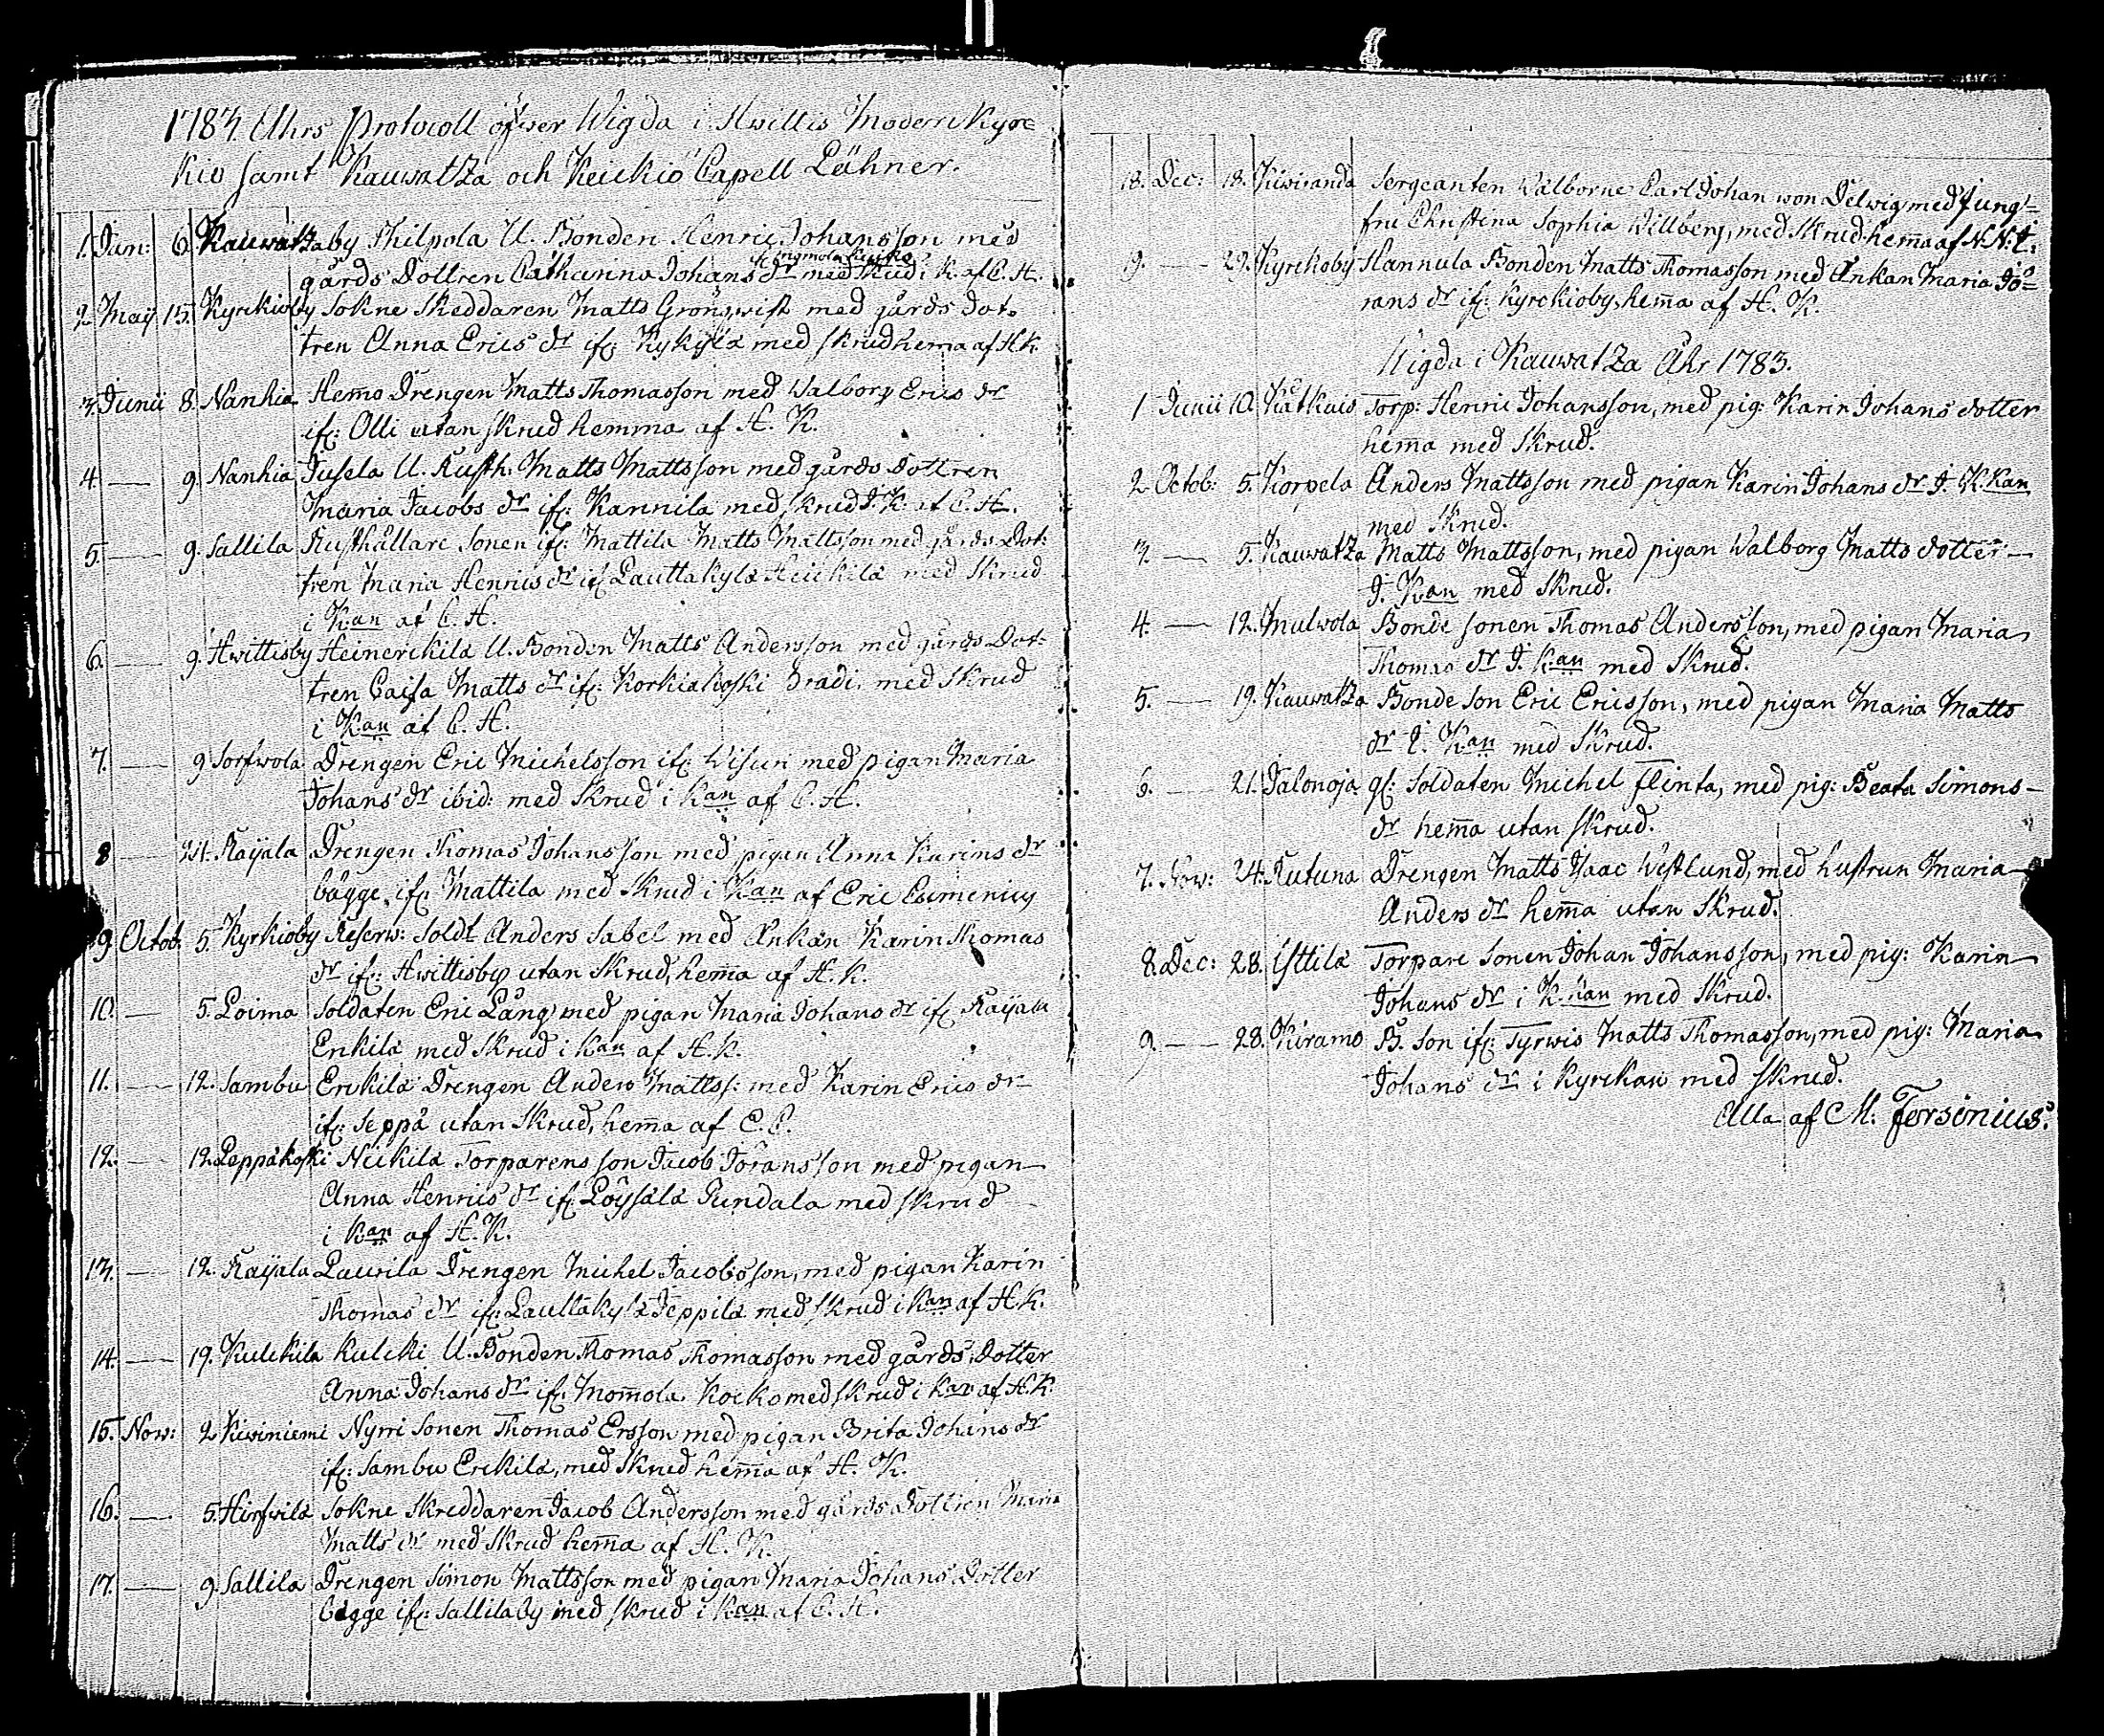 1783 Åhrs Protocoll öfwer Wigda i Hwittis Moderkyr=
kio samt Kauwatza och Keickiö Capell Lähner.
1. Jan: 6. Kauwatzaby Philpola U. Bonden Henric Johansson med
gårds Dottren Catharina Johans dr med skrud i K. af C. H.
2. May 15. Kyrckioby Sokne Skräddaren Matts Grönqwist med gårds Dot-
tren Anna Erics dr ifr. Kykylä med skrud hema af H. K.
3. Junii 8. Nanhia Hemo Drengen Matts Thomasson med Walborg Erics dr
ifr: Olli utan skrud hemma af H. K.
4. — 9. Nanhia Jusela U. Rusth: Matts Mattsson med gårds Dottren
Maria Jacobs dr ifr: Kannila med skrud I. K. af C. H.
5. — 9. Sallila Rusthållare Sonen ifr: Mattila Matts Mattsson med gårds Dot:
tren Maria Henrics dr ifr Lauttakylä Heickilä med Skrud
i Kan af C. H.
6. — 9. Hwittisby Heinerckilä U. Bonden Matts Andersson med gårds Dot:
tren Caisa Matts dr ifr: Korkiakoski Bradi. med Skrud
i Kan af C. H.
7. — 9 Sorfwola Drengen Eric Michelsson ifr: Wisun med pigan Maria
Johans dr ibid: med Skrud i Kan af C. H.
8 — 24. Raijala Drengen Thomas Johansson med pigan Anna Karins dr
bägge ifr Mattila med Skrud i Kan af Eric Eumenius
9 Octob: 5. Kyrkioby Reserw: Soldt Anders Sabel med Änkan Karin Thomas
dr ifr: Hwittisby utan Skrud, hema af H. K.
10. — 5. Loima Soldaten Eric Lång med pigan Maria Johans dr ifr Raijala
Erkilä med Skrud i Kan af H. K.
11. — 12. Sambu Erckilä Drengen Anders Mattss: med Karin Erics dr
ifr: Seppä utan Skrud, hema af E. E.
12. — 12. Leppäkoski Nickilä Torparens son Jacob Jöransson med pigan
Anna Henrics dr ifr Löysälä Gundala med Skrud
i Kan af H. K.
13. — 12. Raijala Laurila Drengen Michel Jacobsson, med pigan Karin
Thomas dr ifr: Lauttakylä Jeppilä med skrud i Kan af H. K.
14. — 19. Kulckila Kulcki U. Bonden Thomas Thomasson med gårds Dotter
Anna Johans dr ifr: Momola Kocko med skrud i Kan af H. K.
15. Now: 2 Kiwiniemi Nyrri Sonen Thomas Ersson med pigan Brita Johans dr
ifr: Sambu Erckilä, med Skrud hema af H. K.
16. — 5. Hirfwilä Sokne Skreddaren Jacob Andersson med gårds Dottren Maria
Matts dr med Skrud hema af H. K.
17. — 9. Sallila Drengen Simon Mattsson med pigan Maria Johans Dotter
bägge ifr: Sallilaby med skrud i Kan af C. H.
18. Dec: 18. Kiwiranda Sergeanten Wälborne Carl Johan won Delwig med Jung=
fru Christina Sophia Willberg, med Skrud hema af N. N. I.
19. — 29. Kyrckoby Hannula Bonden Matts Thomasson med Änkan Maria Jö=
rans dr ifr: Kyrckioby, hema af H. K.
Wigda i Kauwatza Åhr 1783.
1 Junii 10. Kätkais Torp: Henric Johansson, med pig: Karin Johans dotter
hema med Skrud.
2 Octob: 5. Korpela Anders Mattsson med pigan Karin Johans dr I. K:kan
med Skrud.
3. — 5. Kauwatza Matts Mattsson, med pigan Walborg Matts dotter
I. Kan med Skrud.
4. — 12. Mulwola Bonde Sonen Thomas Andersson, med pigan Maria
Thomas dr I. Kan med Skrud.
5. — 19. Kauwatza Bonde Son Eric Ericsson, med pigan Maria Matts
dr I. Kan med Skrud.
6. — 21. Jalonoja gl: Soldaten Michel Flinta, med pig: Beata Simons
dr hema utan Skrud.
7. Now: 24. Rutuna Drengen Matts Isaac Westlund, med hustrun Maria
Anders dr hema utan Skrud.
8. Dec: 28. Isttilä Torpare Sonen Johan Johansson, med pig: Karin
Johans dr i K.kan med Skrud.
9. — 28. Kiramo B. Son ifr: Tyrwis Matts Thomasson, med pig: Maria
Johans dr i Kyrckan med Skrud.
Alla af M: Forsenius.